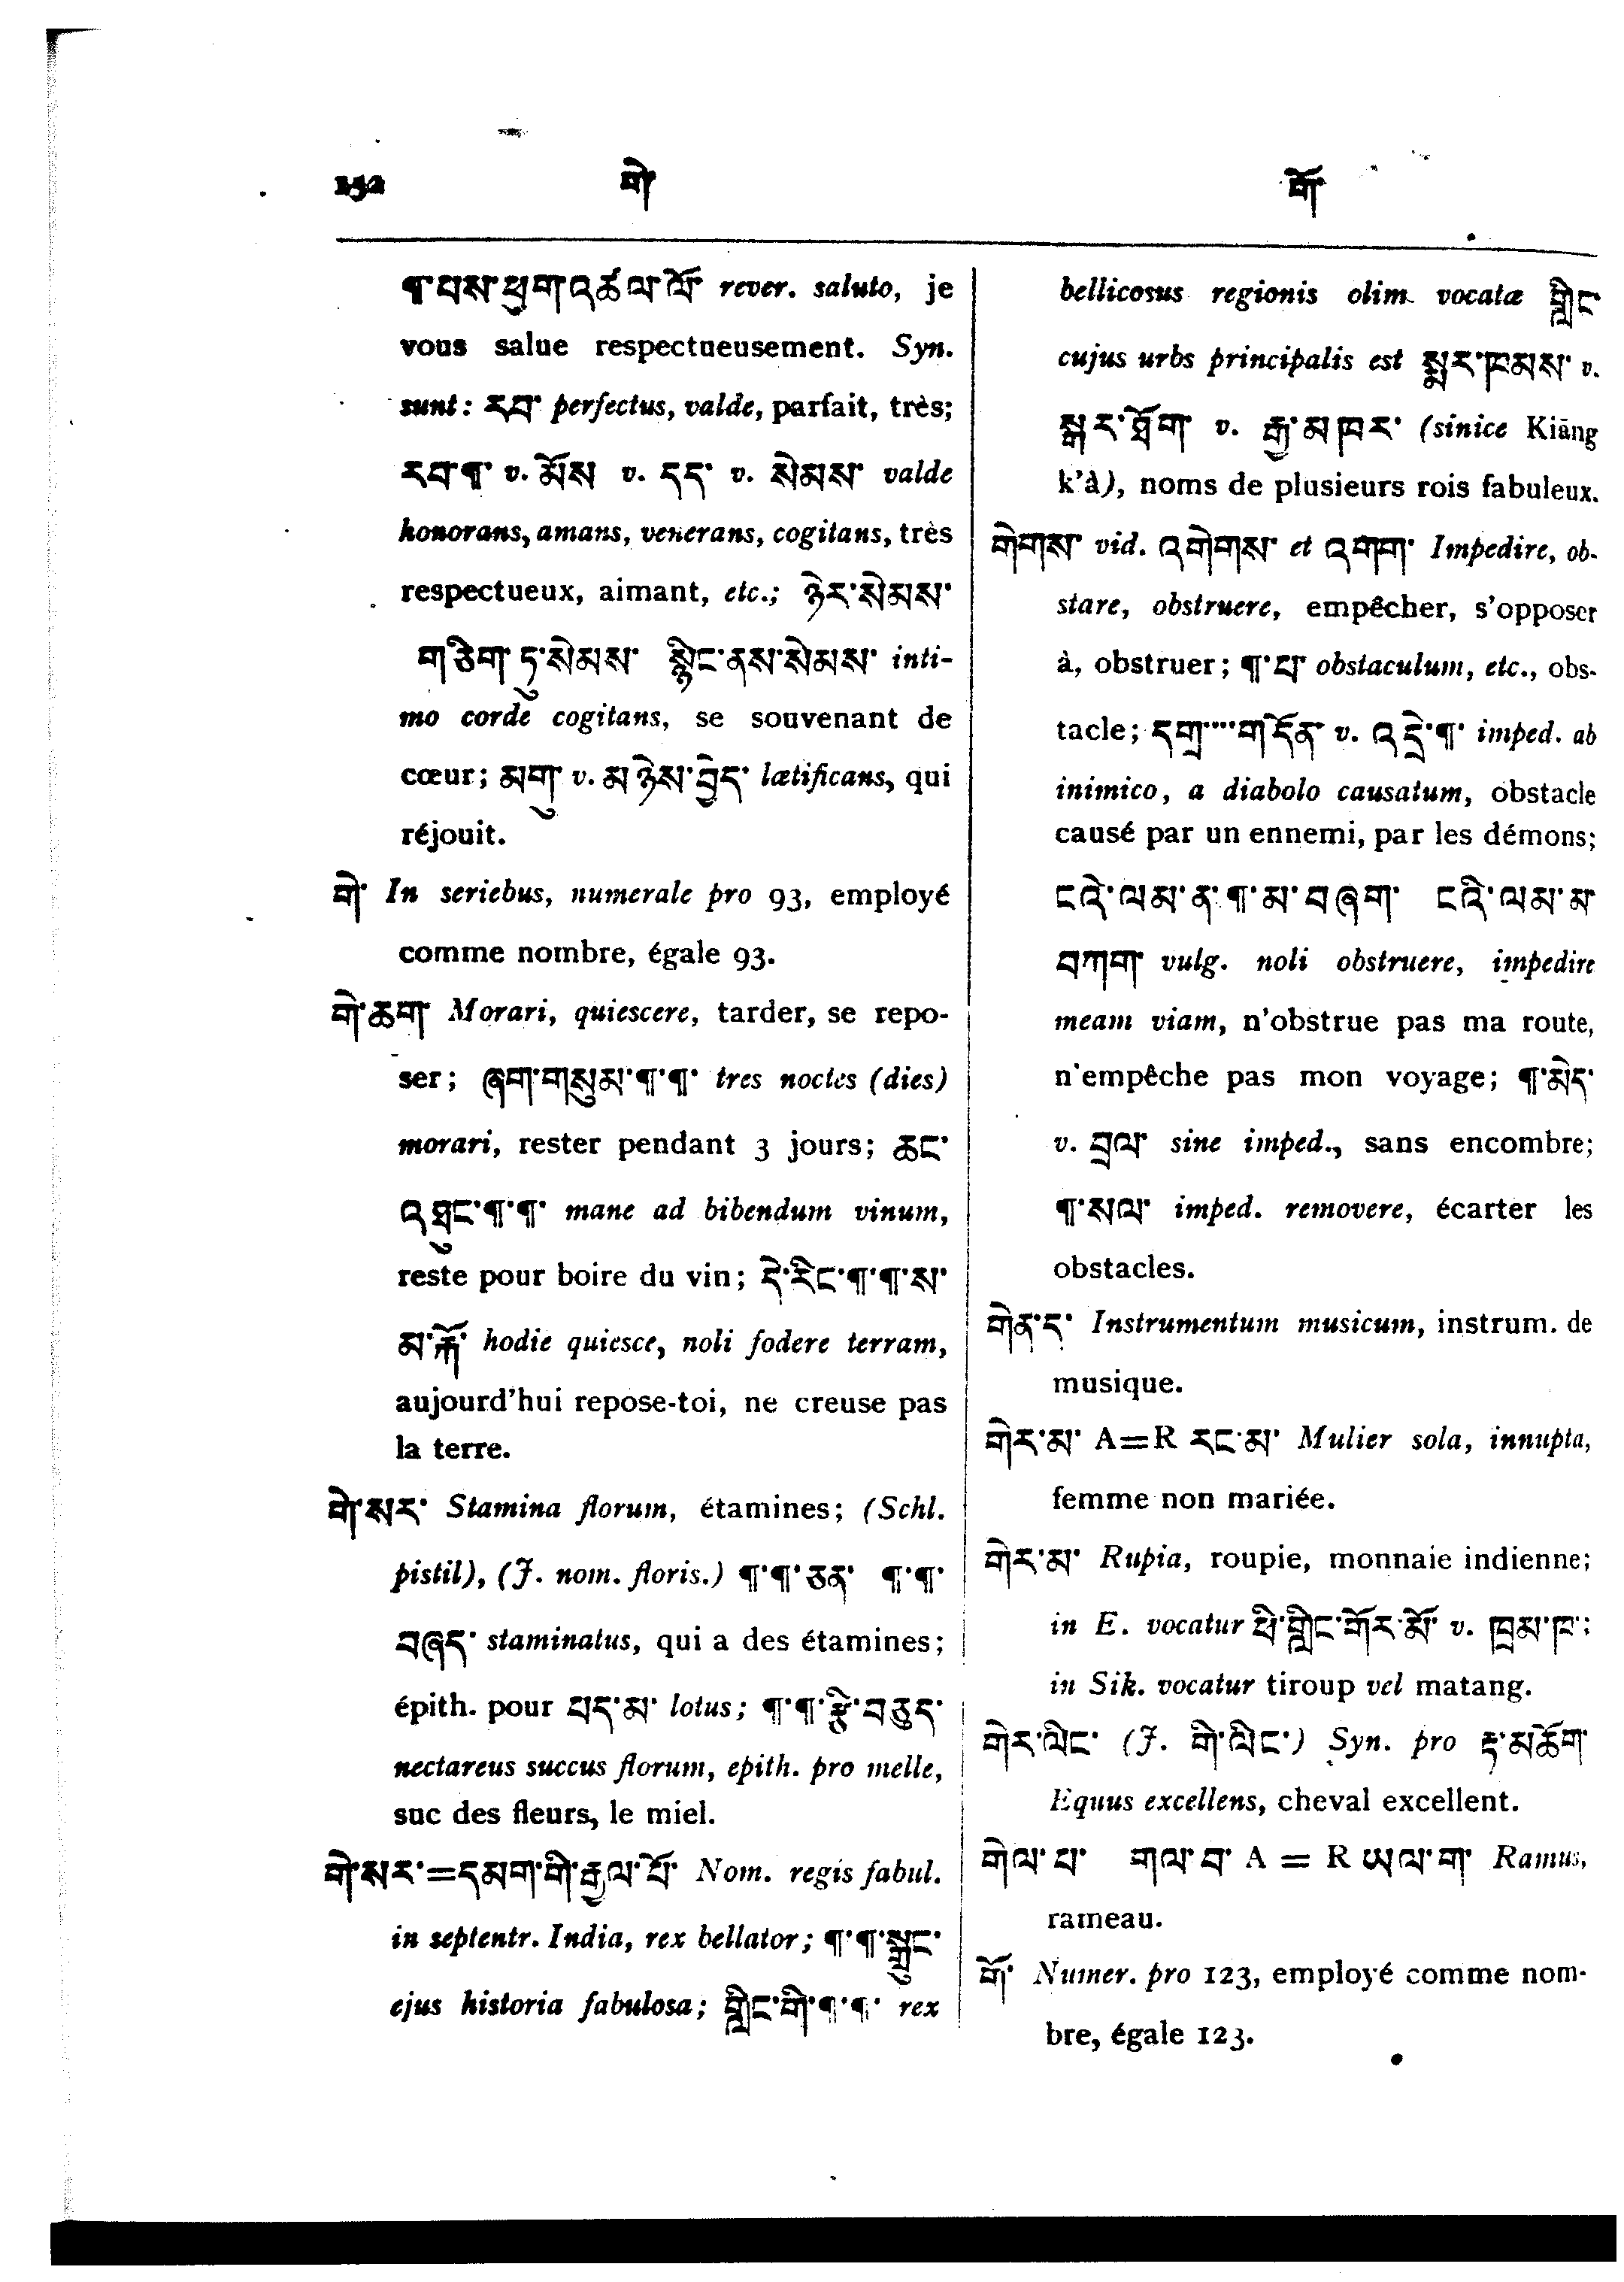 152 གེ་ གོ་
¶་པས་ཕྱག་འཚལ་ལོ་ rever. saluto, je
vous salue respectueusement. Syn.
sunt: རབ་ perfectus, valde, parfait, très;
རབ་¶་ v. མོས v. དད་ v. སེམས་ valde
honorans, amans, venerans, cogitans, très
respectueux, aimant, etc.; ཉེར་སེམས་
གཅིག་ཏུ་སེམས་ སྙིང་ནས་སེམས་ inti-
mo corde cogitans, se souvenant de
cœur; མགུ v. མཉེས་བྱེད་ lætificans, qui
réjouit.
གེ་ In seriebus, numerale pro 93, employé
comme nombre, égale 93.
གེ་ཆག་ Morari, quiescere, tarder, se repo-
ser; ཞག་གསུམ་¶་¶་ tres noctes (dies)
morari, rester pendant 3 jours; ཆང་
འཐུང་¶་¶་ mane ad bibendum vinum,
reste pour boire du vin; དེ་རིང་¶་¶་ས་
མ་རྐོ་ hodie quiesce, noli fodere terram,
aujourd'hui repose-toi, ne creuse pas
la terre.
གེ་སར་ Stamina florum, étamines; (Schl.
pistil), (J. nom. floris.) ¶་¶་ཅན་ ¶་¶་
བཞད་ staminatus, qui a des étamines;
épith. pour པད་མ་ lotus; ¶་¶་རྩི་བཅུད་
nectareus succus florum, epith. pro melle,
suc des fleurs, le miel.
གེ་སར་=དམག་གི་རྒྱལ་པོ་ Nom. regis fabul.
in septentr. India, rex bellator; ¶་¶་སྒྲུང་
ejus historia fabulosa; གླིང་གི་¶་¶་ rex
bellicosus regionis olim vocatæ གླིང་
cujus urbs principalis est སྨར་ཁམས་ v.
སྒར་ཐོག་ v. རྒྱ་མཁར་ (sinice Kiāng
k'à), noms de plusieurs rois fabuleux.
གེགས་ vid. འགེགས་ et འགག་ Impedire, ob-
stare, obstruere, empêcher, s'opposer
à, obstruer; ¶་པ་ obstaculum, etc., obs-
tacle; དགྲ་····གདོན་ v. འདྲེ་¶་ imped. ab
inimico, a diabolo causatum, obstacle
causé par un ennemi, par les démons;
ངའི་ལམ་ན་¶་མ་བཞག་ ངའི་ལམ་མ་
བཀག་ vulg. noli obstruere, impedire
meam viam, n'obstrue pas ma route,
n'empêche pas mon voyage; ¶་མེད་
v. བྲལ་ sine imped., sans encombre;
¶་སལ་ imped. removere, écarter les
obstacles.
གེན་ད་ Instrumentum musicum, instrum. de
musique.
གེར་མ་ A=R རང་མ་ Mulier sola, innupta,
femme non mariée.
གེར་མ་ Rupia, roupie, monnaie indienne;
in E. vocatur ཕི་གླིང་གོར་མོ་ v. ཁྲམ་ཁ་;
in Sik. vocatur tiroup vel matang.
གེར་ལིང་ (J. གི་ལིང་) Syn. pro རྟ་མཆོག་
Equus excellens, cheval excellent.
གེལ་པ་ གལ་བ་ A = R ཡལ་ག་ Ramus,
rameau.
གོ་ Numer. pro 123, employé comme nom-
bre, égale 123.